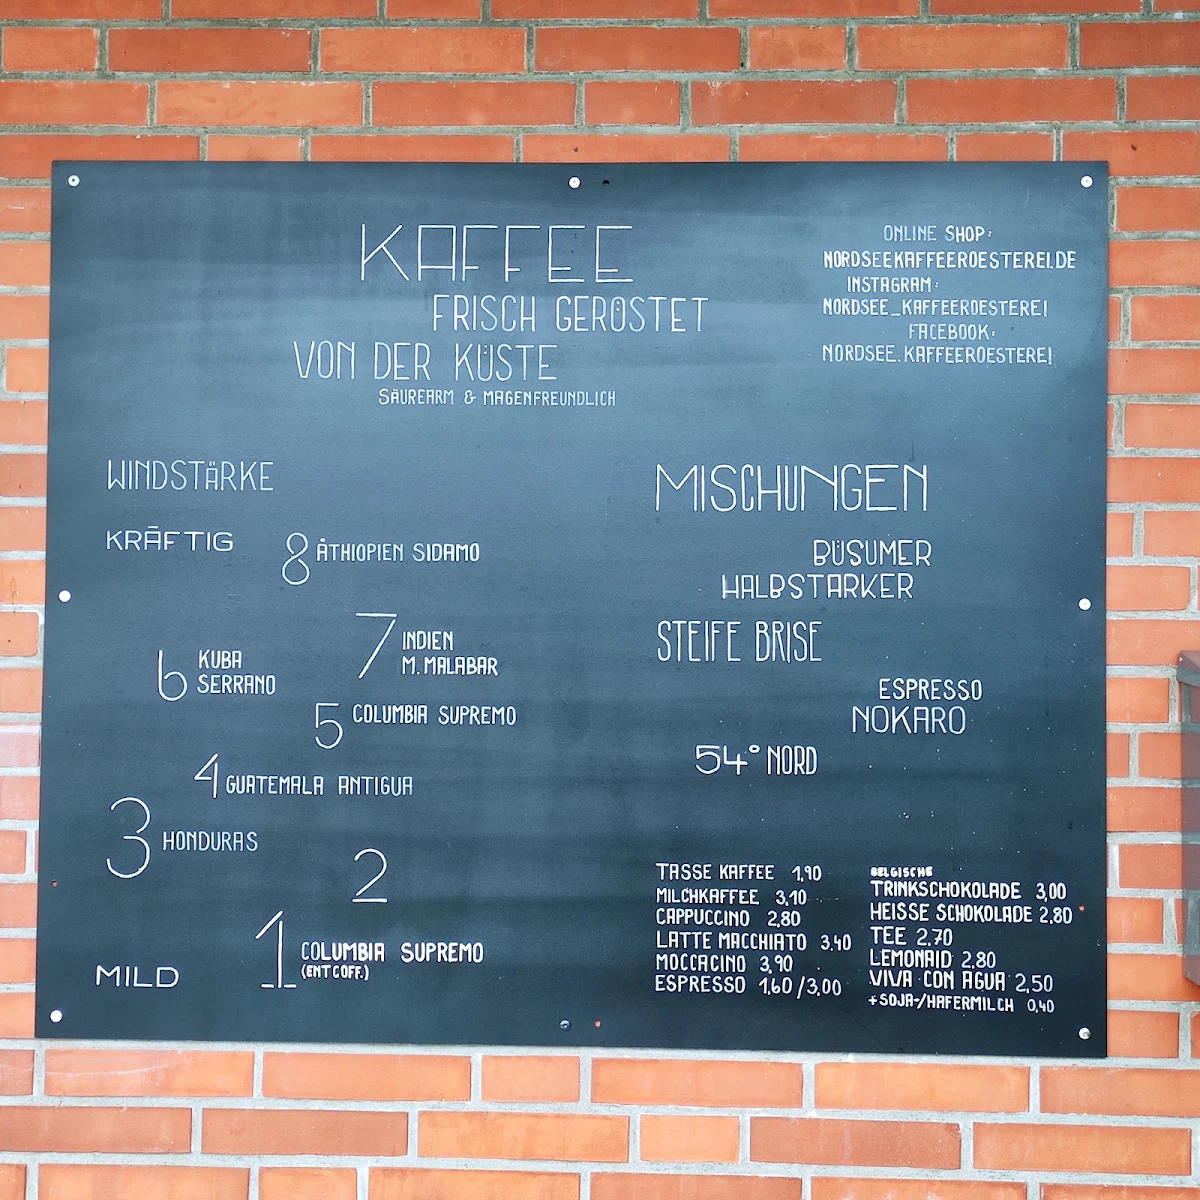 KAFFEE
FRISCH GERÖSTET
VON DER KÜSTE
SÄUREARM & MAGENFREUNDLICH
ONLINE SHOP:
NORDSEEKAFFEEROESTEREI.DE
INSTAGRAM:
NORDSEE_KAFFEEROESTEREI
FACEBOOK:
NORDSEE.KAFFEEROESTEREI
WINDSTÄRKE
KRÄFTIG
8 ÄTHIOPIEN SIDAMO
7 INDIEN
M. MALABAR
6 KUBA
SERRANO
5 COLUMBIA SUPREMO
4 GUATEMALA ANTIGUA
3 HONDURAS
2
1 COLUMBIA SUPREMO
(ENTCOFF.)
MILD
MISCHUNGEN
BÜSUMER
HALBSTARKER
STEIFE BRISE
ESPRESSO
NOKARO
54° NORD
TASSE KAFFEE 1,90
MILCHKAFFEE 3,10
CAPPUCCINO 2,80
LATTE MACCHIATO 3,40
MOCCACINO 3,90
ESPRESSO 1,60/3,00
BELGISCHE
TRINKSCHOKOLADE 3,00
HEISSE SCHOKOLADE 2,80
TEE 2,70
LEMONAID 2,80
VIVA CON AGUA 2,50
+SOJA-/HAFERMILCH 0,40